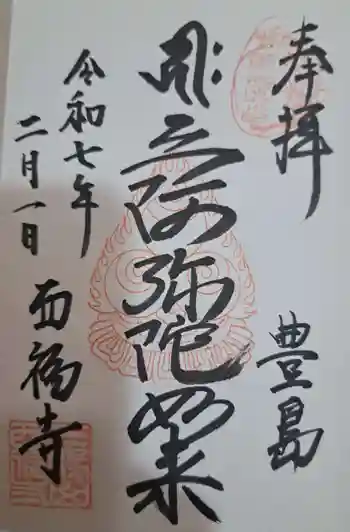 奉拝
豊島
𑖮𑖿𑖨𑖱𑖾六阿弥陀如来
令和七年
二月一日
西福寺